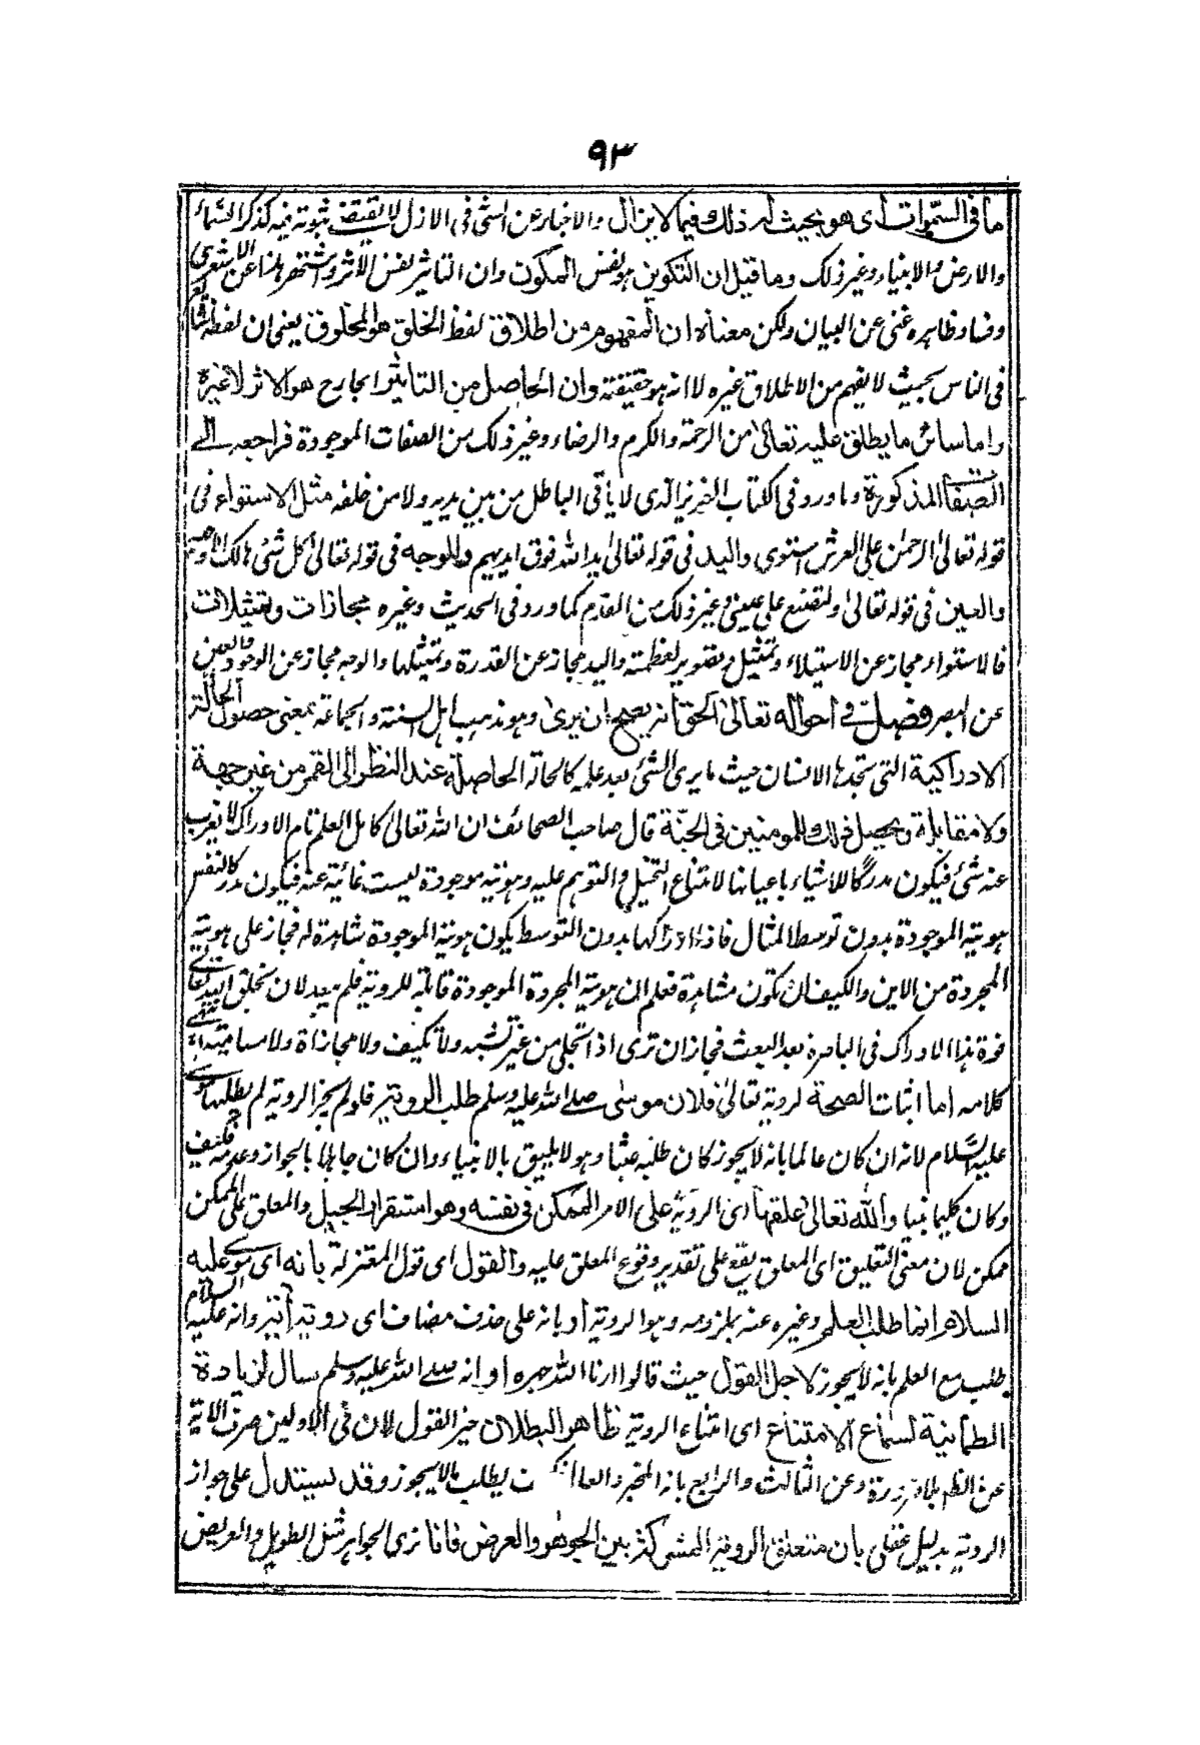 ٩٣
ما فى السموات اى هو بحيث له ذلك فيما لا يزال والاخبار عن الشئ فى الازل لا يقتضى ثبوته فيه كذكر السماء
والارض والانبياء وغير ذلك وما قيل ان التكوين هو نفس المكون وان التاثير نفس الاثر واشتهر هذا عن الاشعرى
وفساد ظاهره غنى عن البيان ولكن معناه ان المفهوم من اطلاق لفظ الخلق هو المخلوق يعنى ان لفظه شاع
فى الناس بحيث لا يفهم من الاطلاق غيره لا انه هو حقيقته وان الحاصل من التاثير الجارح هو الاثر لا غيره
واما سائر ما يطلق عليه تعالى من الرحمة والكرم والرضاء وغير ذلك من الصفات الموجودة فراجعه الى
الصفات المذكورة وما ورد فى الكتاب العزيز الذى لا يأتى الباطل من بين يديه ولا من خلفه مثل الاستواء فى
قوله تعالى الرحمن على العرش استوى واليد فى قوله تعالى يد الله فوق ايديهم والوجه فى قوله تعالى كل شئ هالك الا وجهه
والعين فى قوله تعالى ولتصنع على عينى وغير ذلك من القدم كما ورد فى الحديث وغيره مجازات وتمثيلات
فالاستواء مجاز عن الاستيلاء وتمثيل وتصوير لعظمته واليد مجاز عن القدرة وتمثيلها والوجه مجاز عن الوجود والعين
عن البصر فصل فى احواله تعالى الحق انه يصح ان يرى وهو مذهب اهل السنة والجماعة بمعنى حصول الحالة
الادراكية التى تجدها الانسان حيث ما يرى الشئ بعد علمه كالحالة الحاصلة عند النظر الى القمر من غير جهة
ولا مقابلة ويحصل ذلك للمومنين فى الجنة قال صاحب الصحائف ان الله تعالى كامل العلم تام الادراك لا يغرب
عنه شئ فيكون مدركا للاشياء باعيانها لامتناع التخيل والتوهم عليه وهويته موجودة ليست غائبة عنه فيكون مدركا لنفس
هويته الموجودة بدون توسط المثال فاذا ادراكها بدون التوسط يكون هويته الموجودة شاهدة له فجاز على هويته
المجردة من الاين والكيف ان تكون مشاهدة فعلم ان هويته المجردة الموجودة قابلة للروية فلم يبعد لان يخلق الله تعالى
قوة هذا الادراك فى الباصرة بعد البعث فجاز ان ترى اذا تجلى من غير تشبه ولا تكيف ولا محازاة ولا مسامتة انتهى
كلامه اما اثبات الصحة لروية تعالى فلان موسى صلى الله عليه وسلم طلب الروية فلو لم يجز الروية لم يطلبها موسى
عليه السلام لانه ان كان عالما بانه لا يجوز كان طلبه عبثا وهو لا يليق بالانبياء وان كان جاهلا بالجواز وعدمه فكيف
وكان كليما نبيا والله تعالى علقها اى الروية على الامر الممكن فى نفسه وهو استقرار الجبل والمعلق على الممكن
ممكن لان معنى التعليق اى المعلق يقع على تقدير وقوع المعلق عليه والقول اى قول المعتزلة بانه اى موسى عليه
السلام انما طلب العلم وغيره عنه بلزومه وهو الروية او بانه على حذف مضاف اى روية آية وانه عليه السلام
طلب مع العلم بانه لا يجوز لاجل القول حيث قالوا ارنا الله جهرة او انه صلى الله عليه وسلم سال لزيادة
الطمانية لسماع الامتناع اى امتناع الروية ظاهر البطلان خبر القول لان فى الاولين صرف الاية
عن الظاهر بلا ضرورة وعن الثالث والرابع بانه المخبر والعا ت يطلب ما لا يجوز وقد يستدل على جواز
الروية بدليل عقلى بان متعلق الروية المشترك بين الجوهر والعرض فانا نرى الجواهر مثل الطويل والعريض